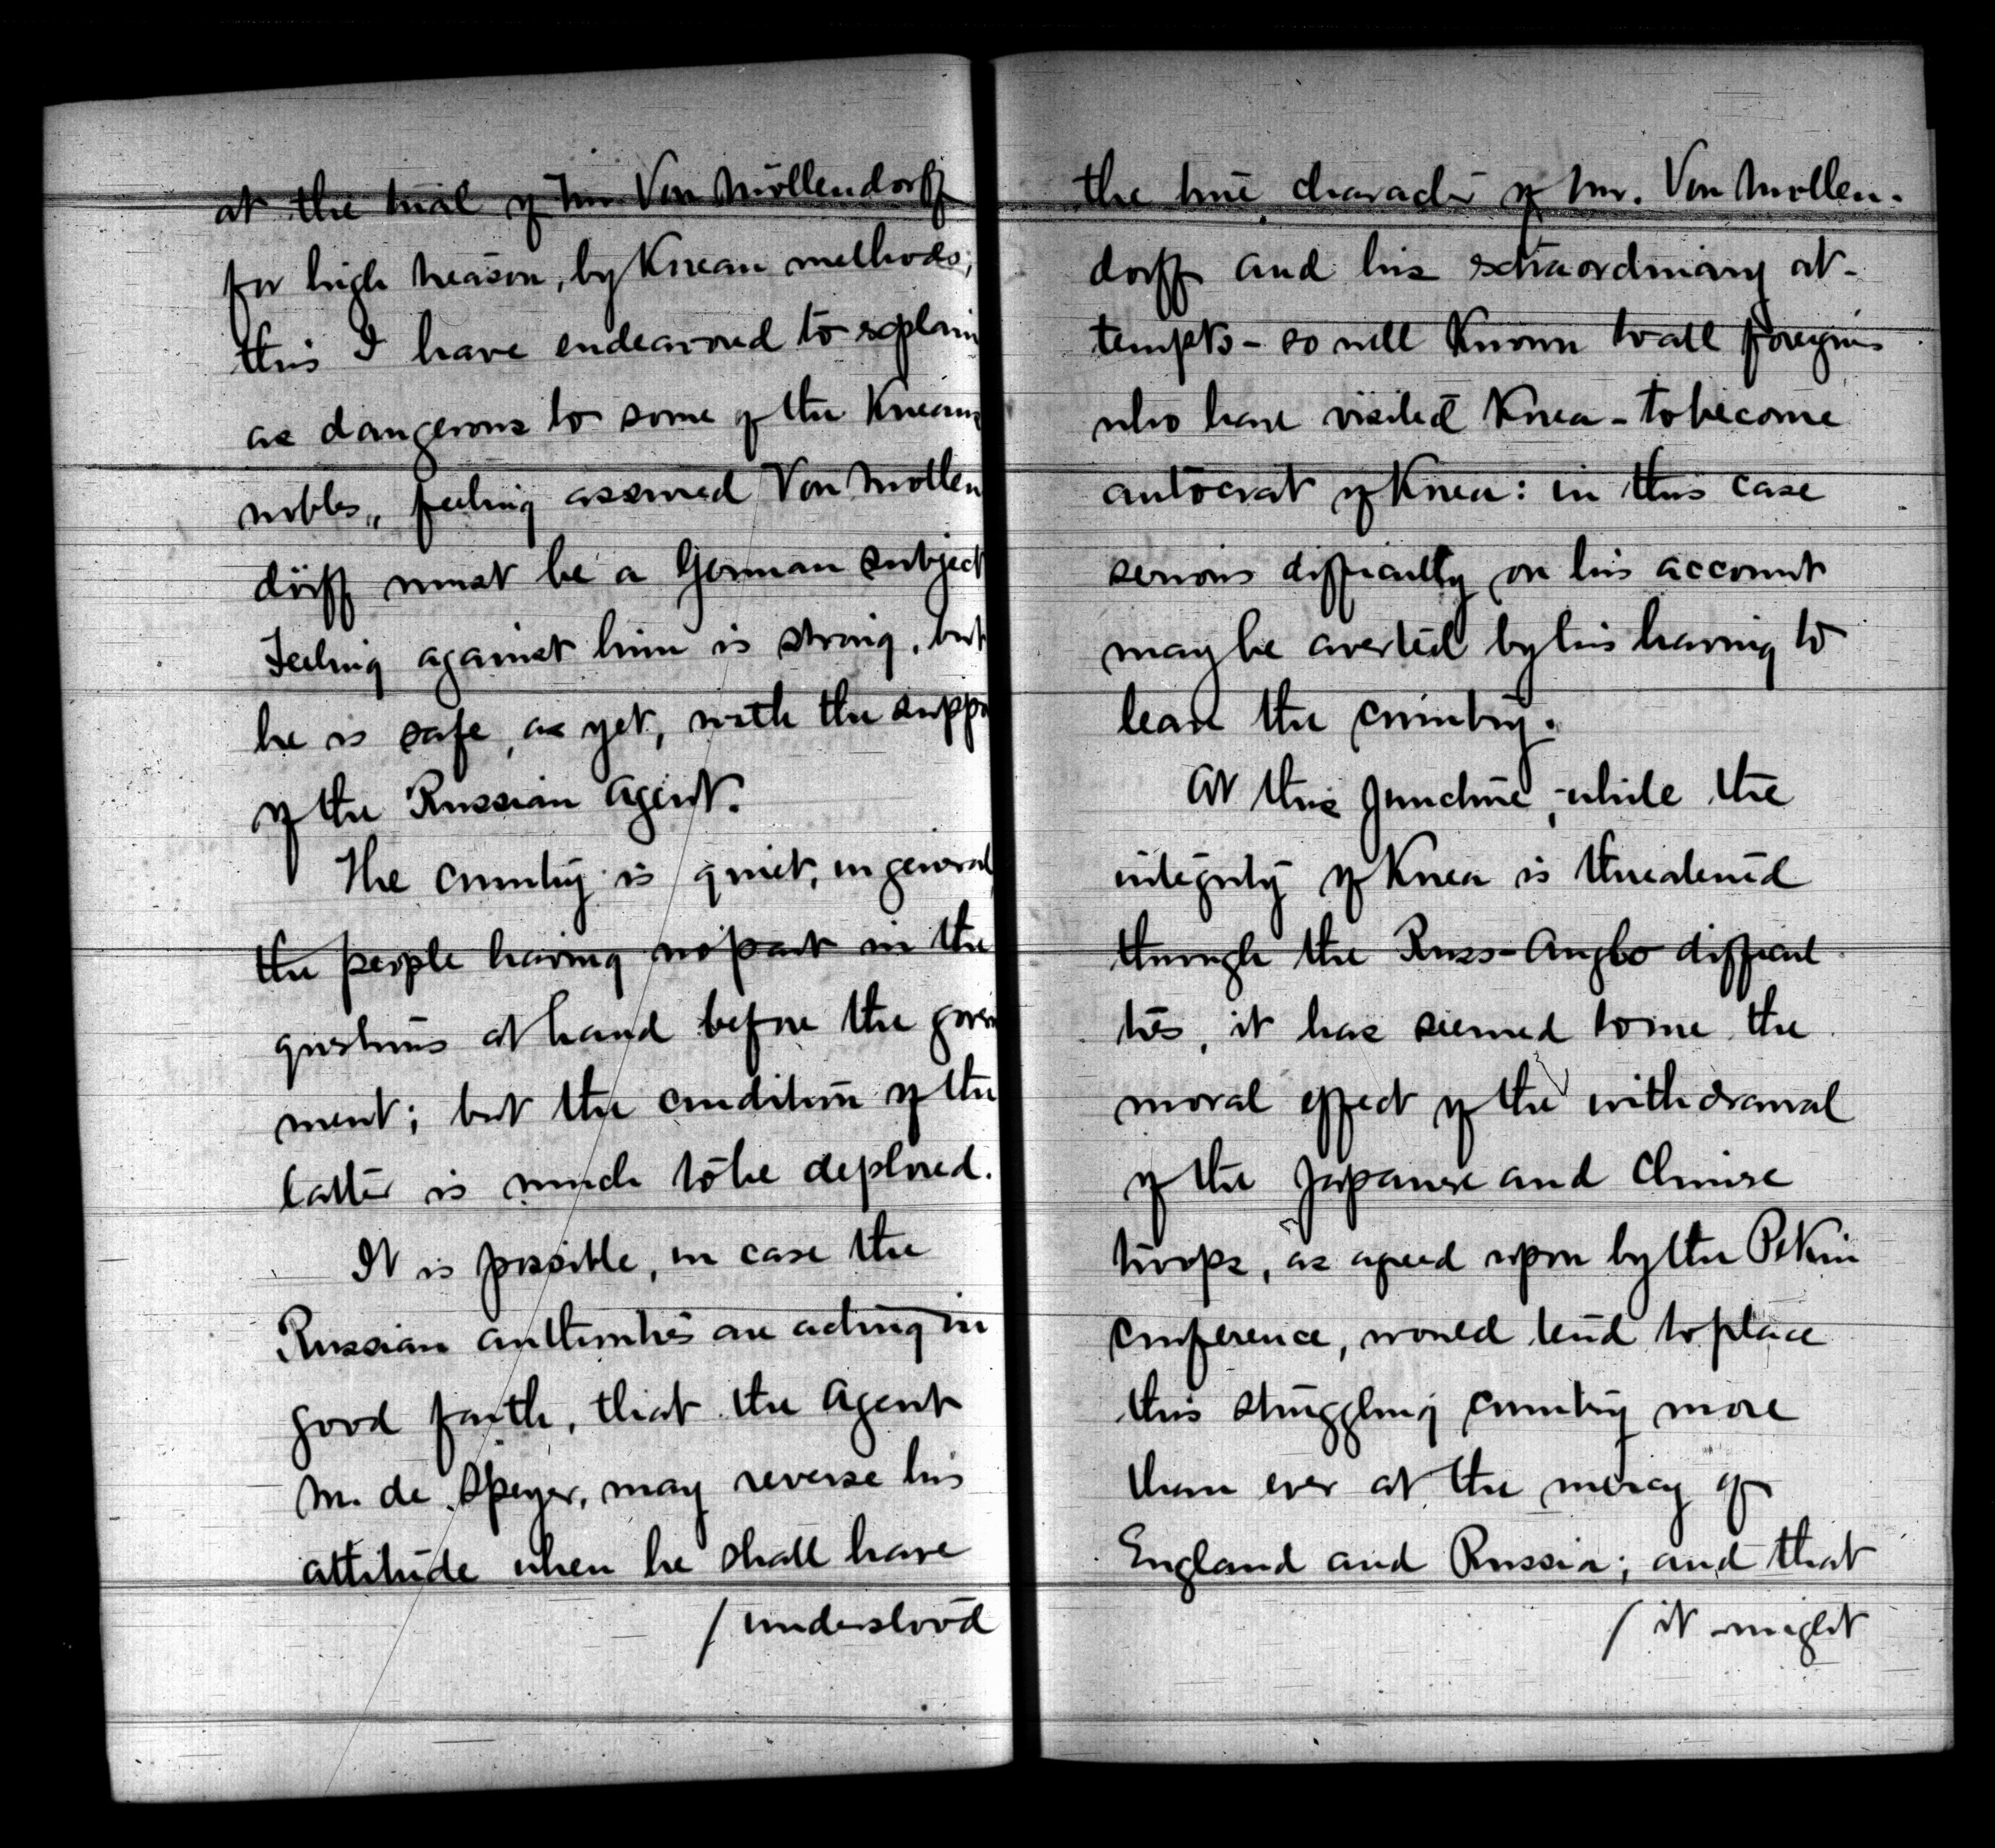 at the trial of Mr Von Möllendorff
for high treason, by Korean methods;
this I have endeavored to explain
as dangerous to some of the Korean
nobles, feeling assured Von Mollen
dörff must be a German subject
Feeling against him is strong, but
he is safe, as yet, with the suppo
of the Russian Agent.
The country is quiet, in general
the people having no part in the
questions at hand before the govern
ment; but the condition of the
latter is much to be deplored.
It is possible, in case the
Russian authorities are acting in
good faith, that the Agent
M. de Speyer, may reverse his
attitude when he shall have
/ understood
the true character of Mr. Von Mollen-
dorff and his extraordinary at-
tempts - so well known to all foreigners
who have visited Korea - to become
autocrat of Korea: in this case
serious difficulty on his account
may be averted by his having to
leave the country.
At this juncture, while the
integrity of Korea is threatened
through the Russ-Anglo difficul
ties, it has seemed to me the
moral effect of the withdrawal
of the Japanese and Chinese
troops, as agreed upon by the Pekin
conference, would tend to place
this struggling country more
than ever at the mercy of
England and Russia; and that
/ it might